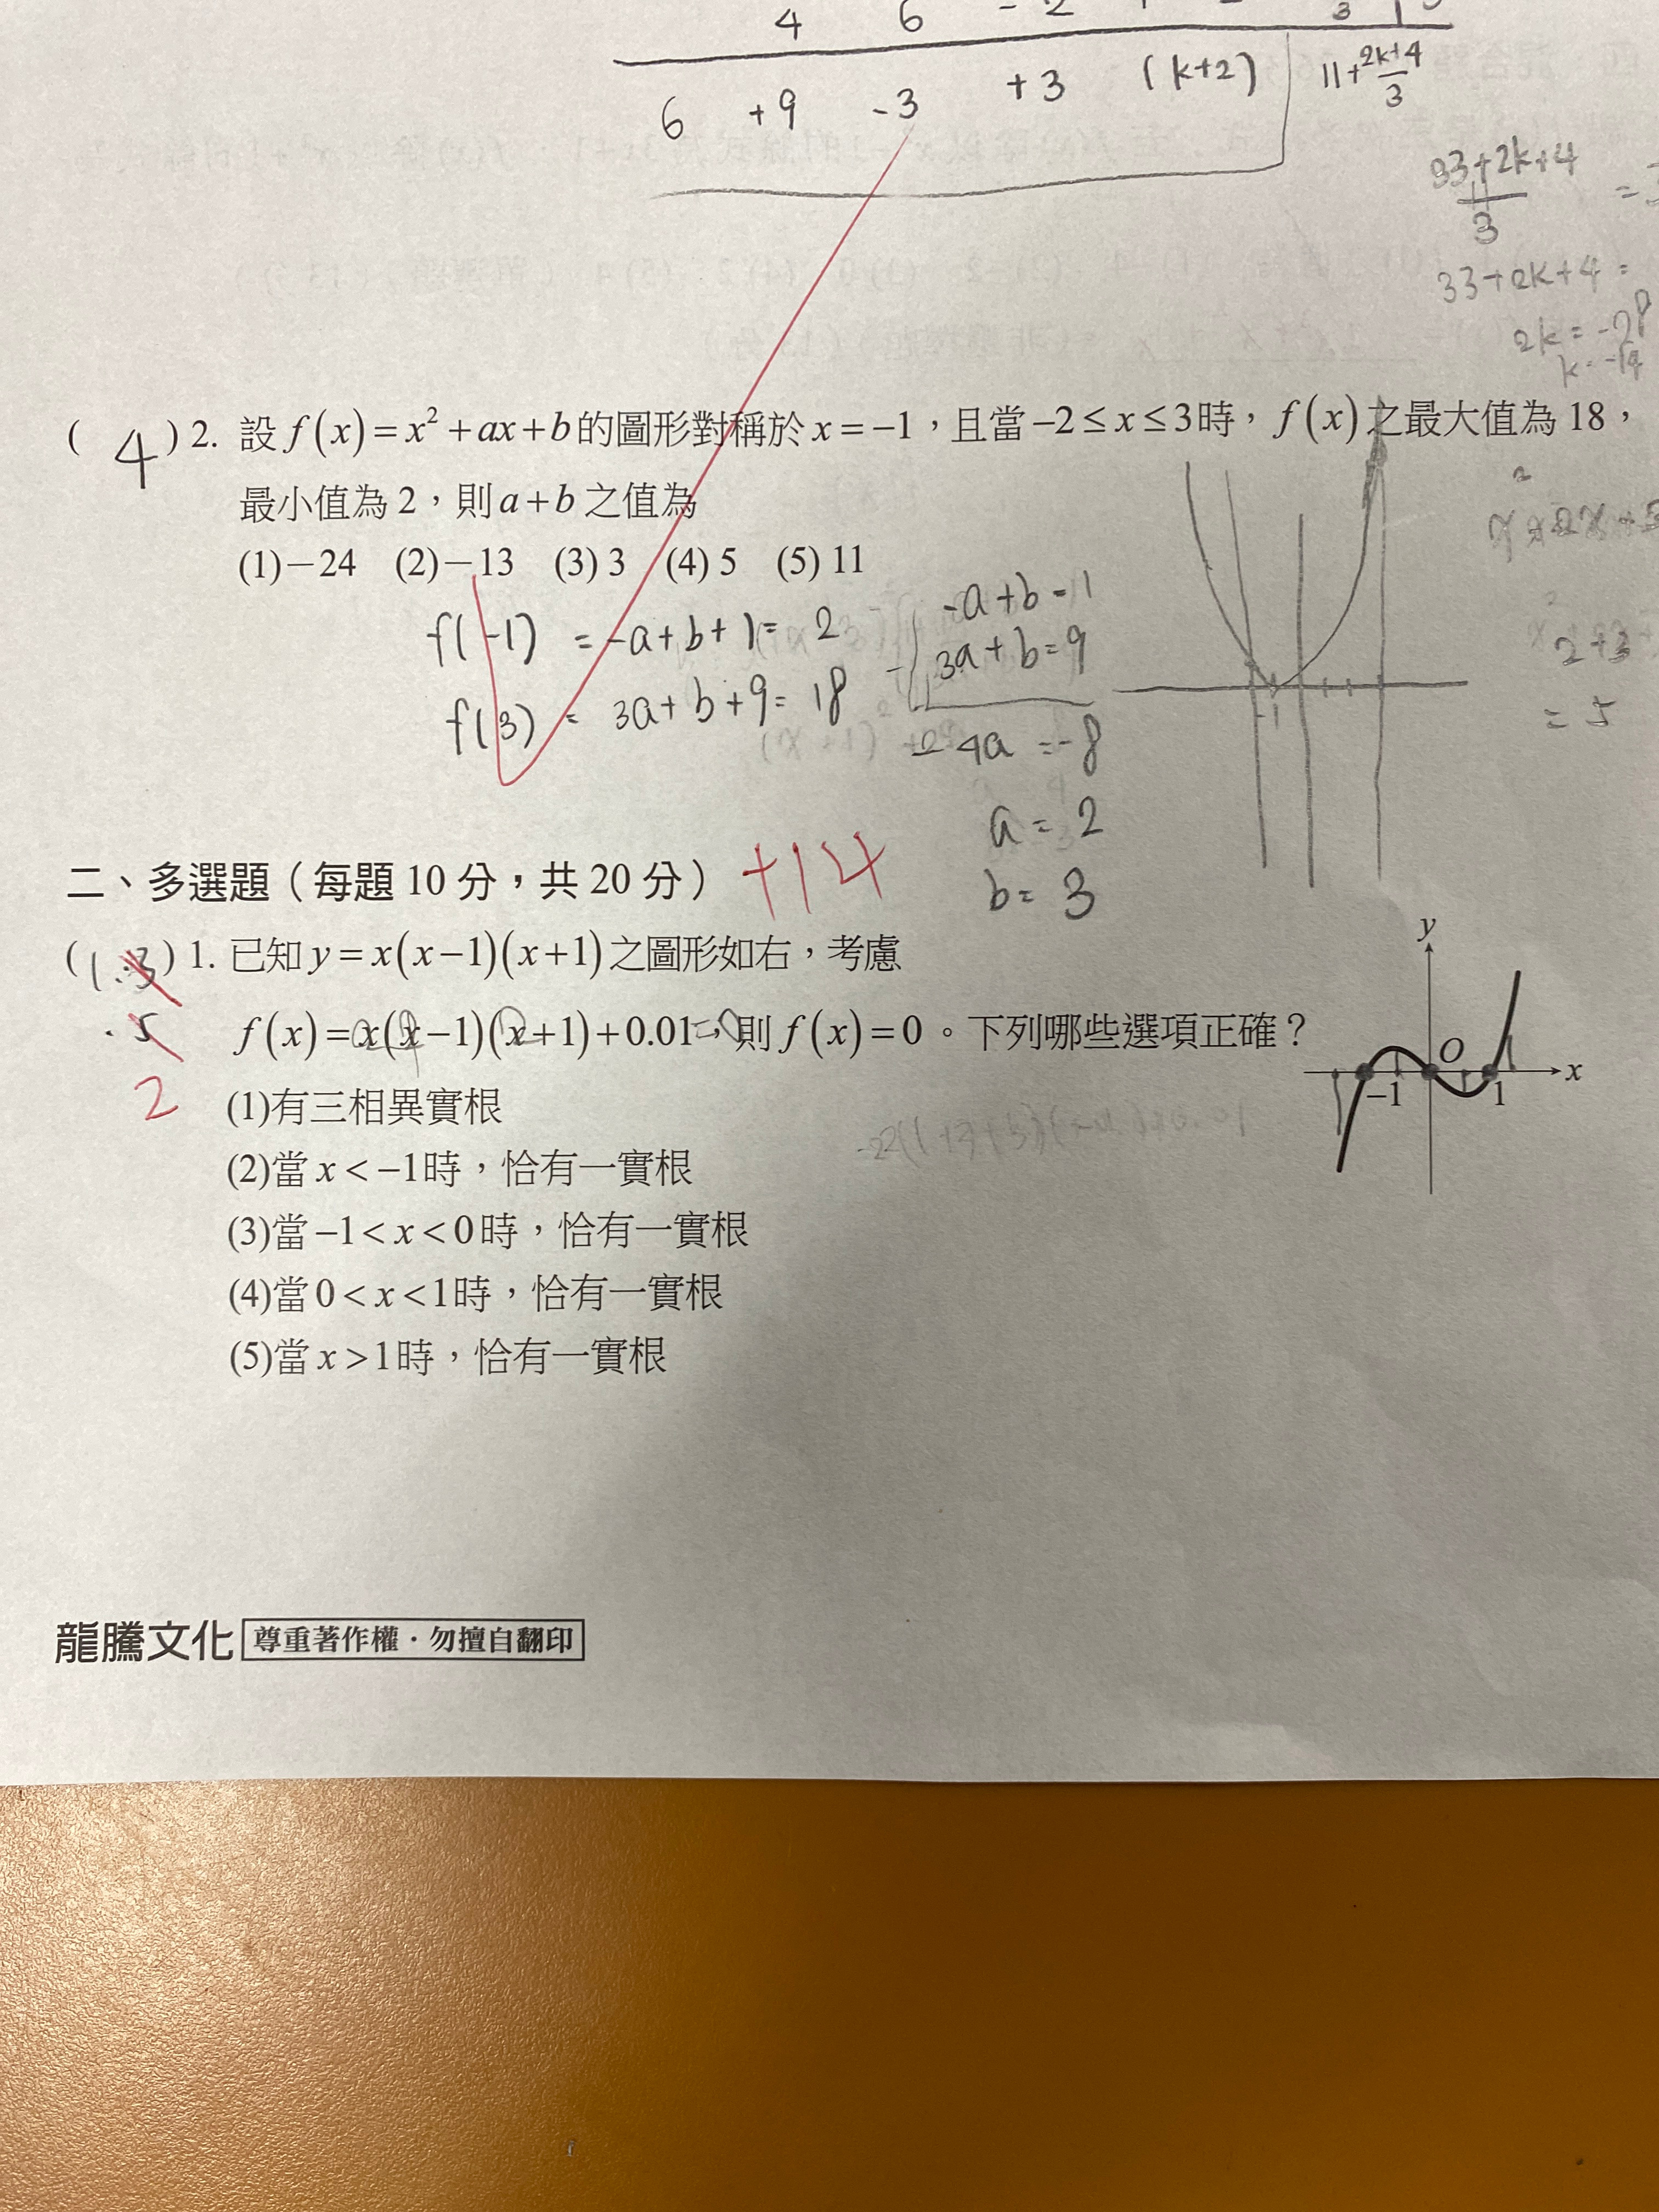 4 6 - 2
6 +9 -3 +3 (k+2) 11+\frac{2k+4}{3}
\frac{33+2k+4}{3} =
33+2k+4=
2k=-28
k=-14
( 4 ) 2. 設 f(x)=x²+ax+b 的圖形對稱於 x=-1，且當 -2≤x≤3 時，f(x) 之最大值為 18，
最小值為 2，則 a+b 之值為
(1)-24 (2)-13 (3) 3 (4) 5 (5) 11
f(-1) = -a+b+1= 2
f(3) = 3a+b+9= 18
-a+b=1
3a+b=9
-4a =-8
a= 2
b= 3
-1
2+3
= 5
二、多選題（每題 10 分，共 20 分） +14
( 1.3 ) 1. 已知 y=x(x-1)(x+1) 之圖形如右，考慮
.5
f(x)=x(x-1)(x+1)+0.01，則 f(x)=0。下列哪些選項正確？
2
(1)有三相異實根
(2)當 x<-1 時，恰有一實根
(3)當 -1<x<0 時，恰有一實根
(4)當 0<x<1 時，恰有一實根
(5)當 x>1 時，恰有一實根
y
O
x
-1 1
龍騰文化 尊重著作權·勿擅自翻印